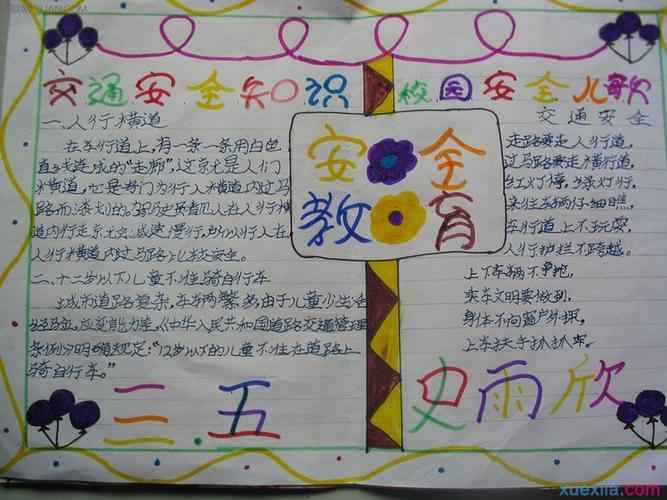 交通安全知识
一、人行横道
在车行道上,有一条一条用白色
直线连成的"走廊",这就是人们
横道,它是专门为行人横道内过马
路而漆划的。驾马史员看见人在人行横
道内行走就会减速慢行,所以行人在
人行横道内过马路比较安全。
二、十二岁以下儿童不准骑自行车
城市道路复杂,车辆繁多,由于儿童少生活
经验,应变能力差。《中华人民共和国道路交通管理
条例》明确规定:"12岁以下的儿童不准在道路上
骑自行车。"
三.五
安全
教育
校园安全儿歌
交通安全
走路要走人行道,
过马路要走横行道,
红灯停,绿灯行,
来往车辆仔细瞧,
车行道上不玩耍,
人行护栏不跨越。
上下车辆不争抢,
乘车文明要做到,
身体不向窗户外探,
上车扶手抓抓牢。
史雨欣
xuexila.com